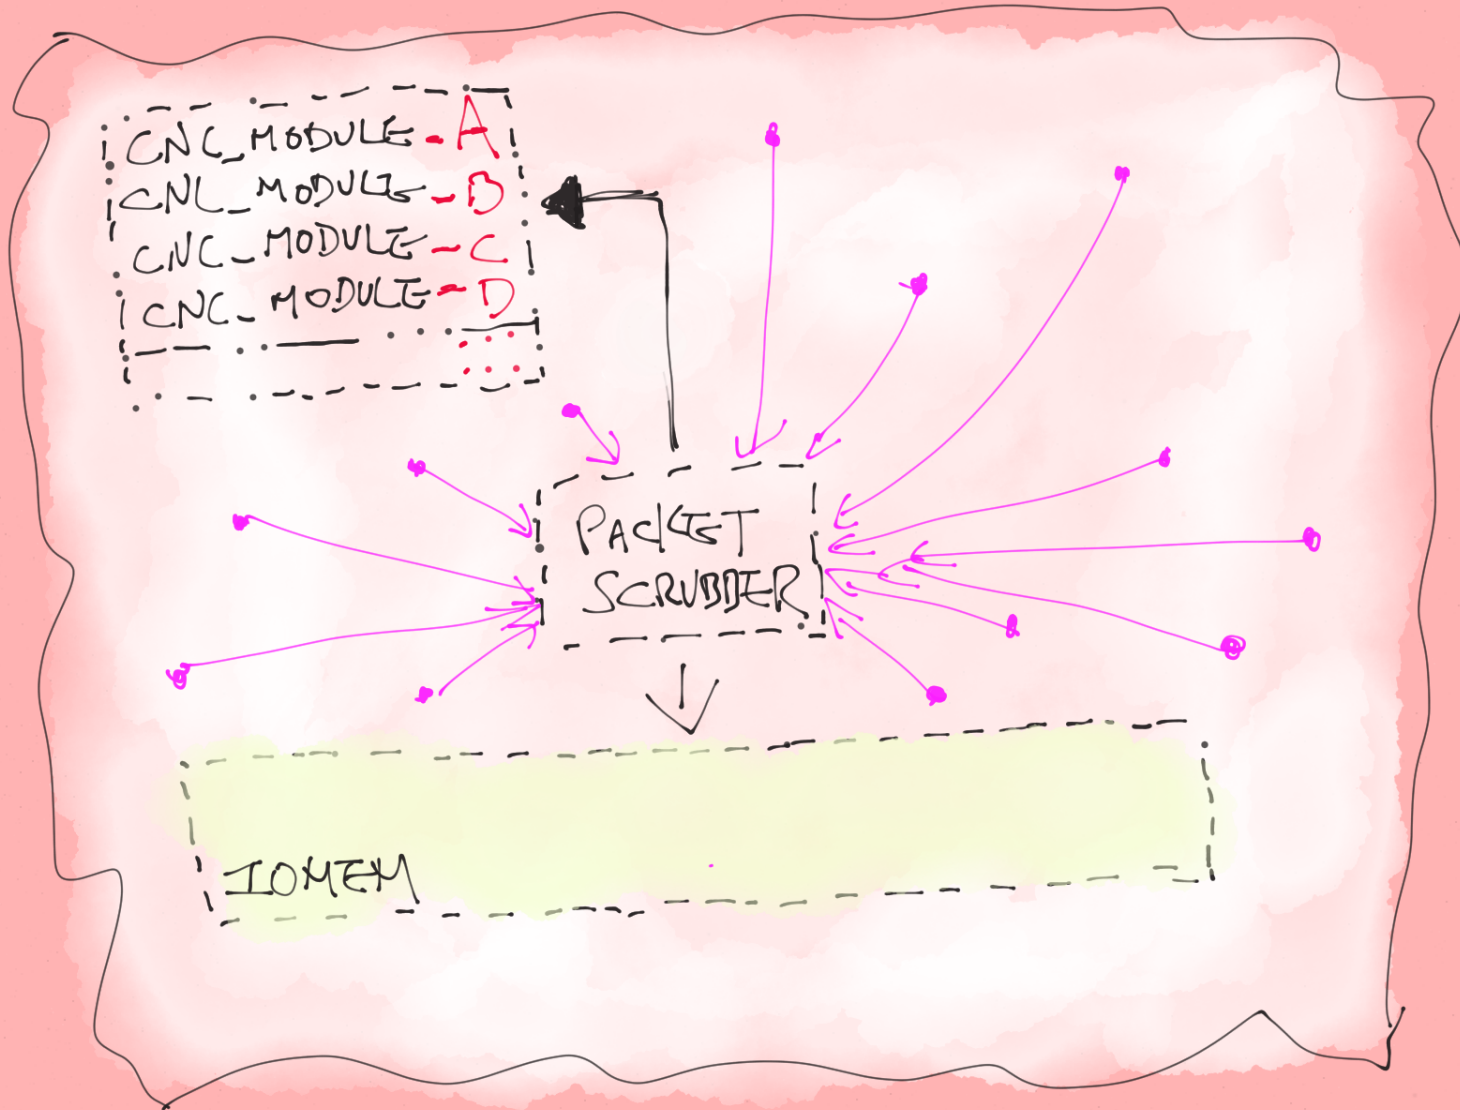 CNC_MODULE-A
CNC_MODULE-B
CNC_MODULE-C
CNC_MODULE-D
PACKET
SCRUBBER
IOMEM